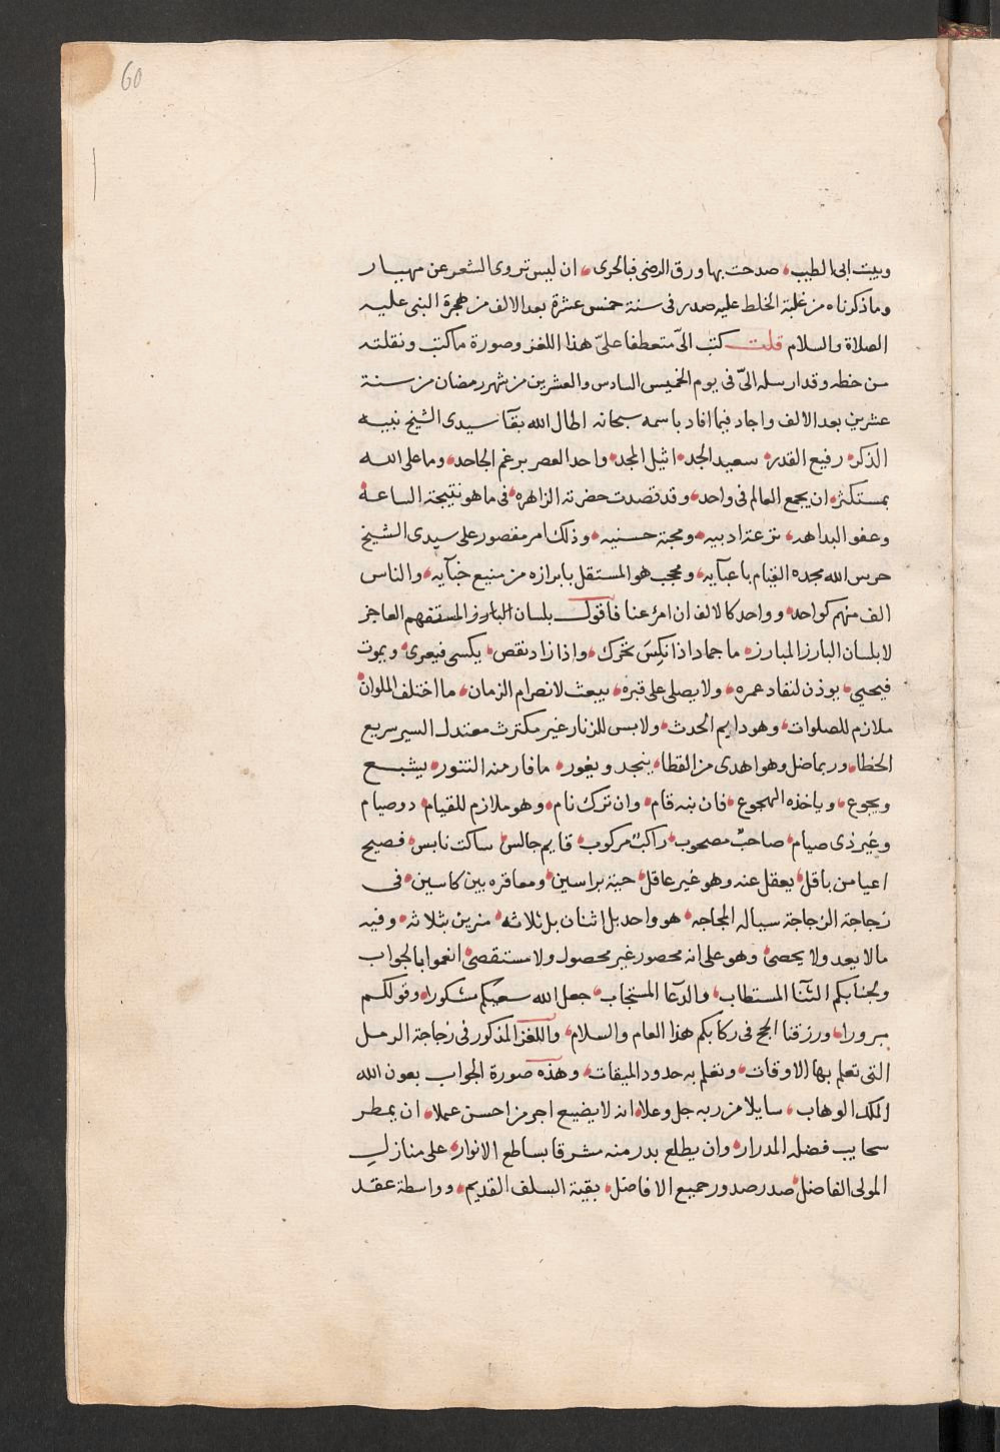 60
وبيت ابى الطيب، صدحت بها ورق الرضى فبالحرى، ان ليس تروى الشعر عن مهيار
وما ذكرناه من غلبة الخلط عليه صدر فى سنة خمس عشرة بعد الالف من هجرة النبى عليه
الصلاة والسلام قلت كتب الىّ متعطفا علىّ هذا اللغز وصورة ما كتب ونقلته
من خطه وقد ارسله الىّ فى يوم الخميس السادس والعشرين من شهر رمضان من سنة
عشرين بعد الالف واجاد فيما افاد باسمه سبحانه اطال الله بقآ سيدى الشيخ نبيه
الذكر، رفيع القدر، سعيد الجد، اثيل المجد، واحد العصر برغم الجاحد، وما على الله
بمستكثر، ان يجمع العالم فى واحد، وقد قصدت حضرته الزاهره، فى ما هو نتيجة الساعة
وعفو البداهه، نزعة ادبيه، ومحبة حسنيه، وذلك امر مقصور على سيدى الشيخ
حرس الله مجده القيام باعبآيه، ومحجب هو المستقل بابرازه من منيع خبآيه، والناس
الف منهم كواحد، وواحد كالالف ان امر عنا فاقول بلسان البارز المستفهم العاجز
لا بلسان البارز المبارز، ما جماد اذا نكس تحرك، واذا زاد نقص، يكسى فيعرى، ويموت
فيحيى، يوذن لنفاد عمره، ولا يصلى على قبره، يبعث لانصرام الزمان، ما اختلف الملوان
ملازم للصلوات، وهو دايم الحدث، ولابس للزنار غير مكترث معتدل السير سريع
الخطا، وربما ضل وهو اهدى من القطا، ينجد ويغور، ما فار منه التنور، يشبع
ويجوع، وياخذه الهجوع، فان نبه قام، وان ترك نام، وهو ملازم للقيام، ذو صيام
وغير ذى صيام، صاحب مصحوب، راكب مركوب، قايم جالس، ساكت نابس، فصيح
اعيا من باقل، يعقل عنه وهو غير عاقل، حية براسين، ومعاقره بين كاسين، فى
زجاجة الزجاجة سيالة المجاجه، هو واحد بل اثنان بل ثلاثه، مزين بثلاثه، وفيه
ما لا يعد ولا يحصى، وهو على انه محصور غير محصول ولا مستقصى، انعموا بالجواب
ولجنابكم الثنآ المستطاب، والدعآ المستجاب، جعل الله سعيكم شكورا، وقولكم
برورا، ورزقنا الحج فى ركابكم هذا العام والسلام، واللغز المذكور فى زجاجة الرمل
التى تعلم بها الاوقات، وتعلم به حدود الميقات، وهذه صورة الجواب بعون الله
الملك الوهاب، سايلا من ربه جل وعلا، انه لا يضيع اجر من احسن عملا، ان يمطر
سحايب فضله المدرار، وان يطلع بدر منه مشرقا بساطع الانوار، على منازل
المولى الفاضل، صدر صدور جميع الافاضل، بقية السلف القديم، وواسطة عقد